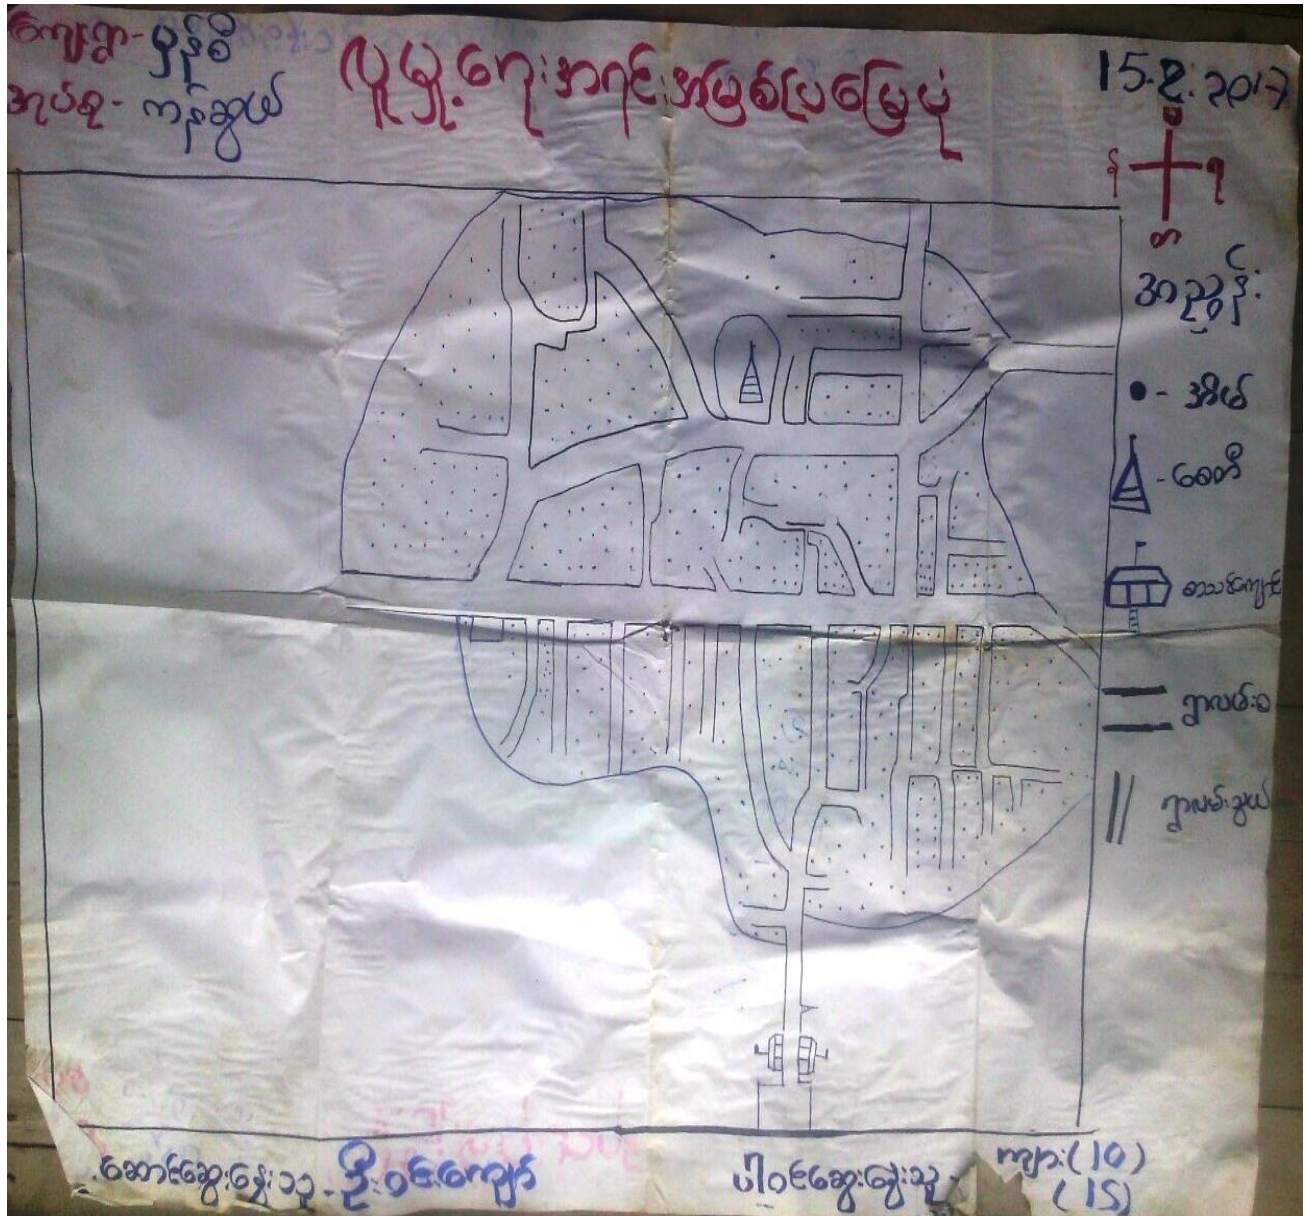 ကျေးရွာ - မှန်စီ
အုပ်စု - ကန်ဆွယ်
လူမှု့ရေးအရင်းအမြစ်ပြမြေပုံ
15.2.2017
န
ရ
တ
အညွှန်း
- အိမ်
- စေတီ
စာသင်ကျောင်း
ရွာလမ်းမ
ရွာလမ်းသွယ်
ဆောင်ဆွေးနွေးသူ - ဦးဝင်းကျော်
ပါဝင်ဆွေးနွေးသူ -
ကျား(10)
(15)